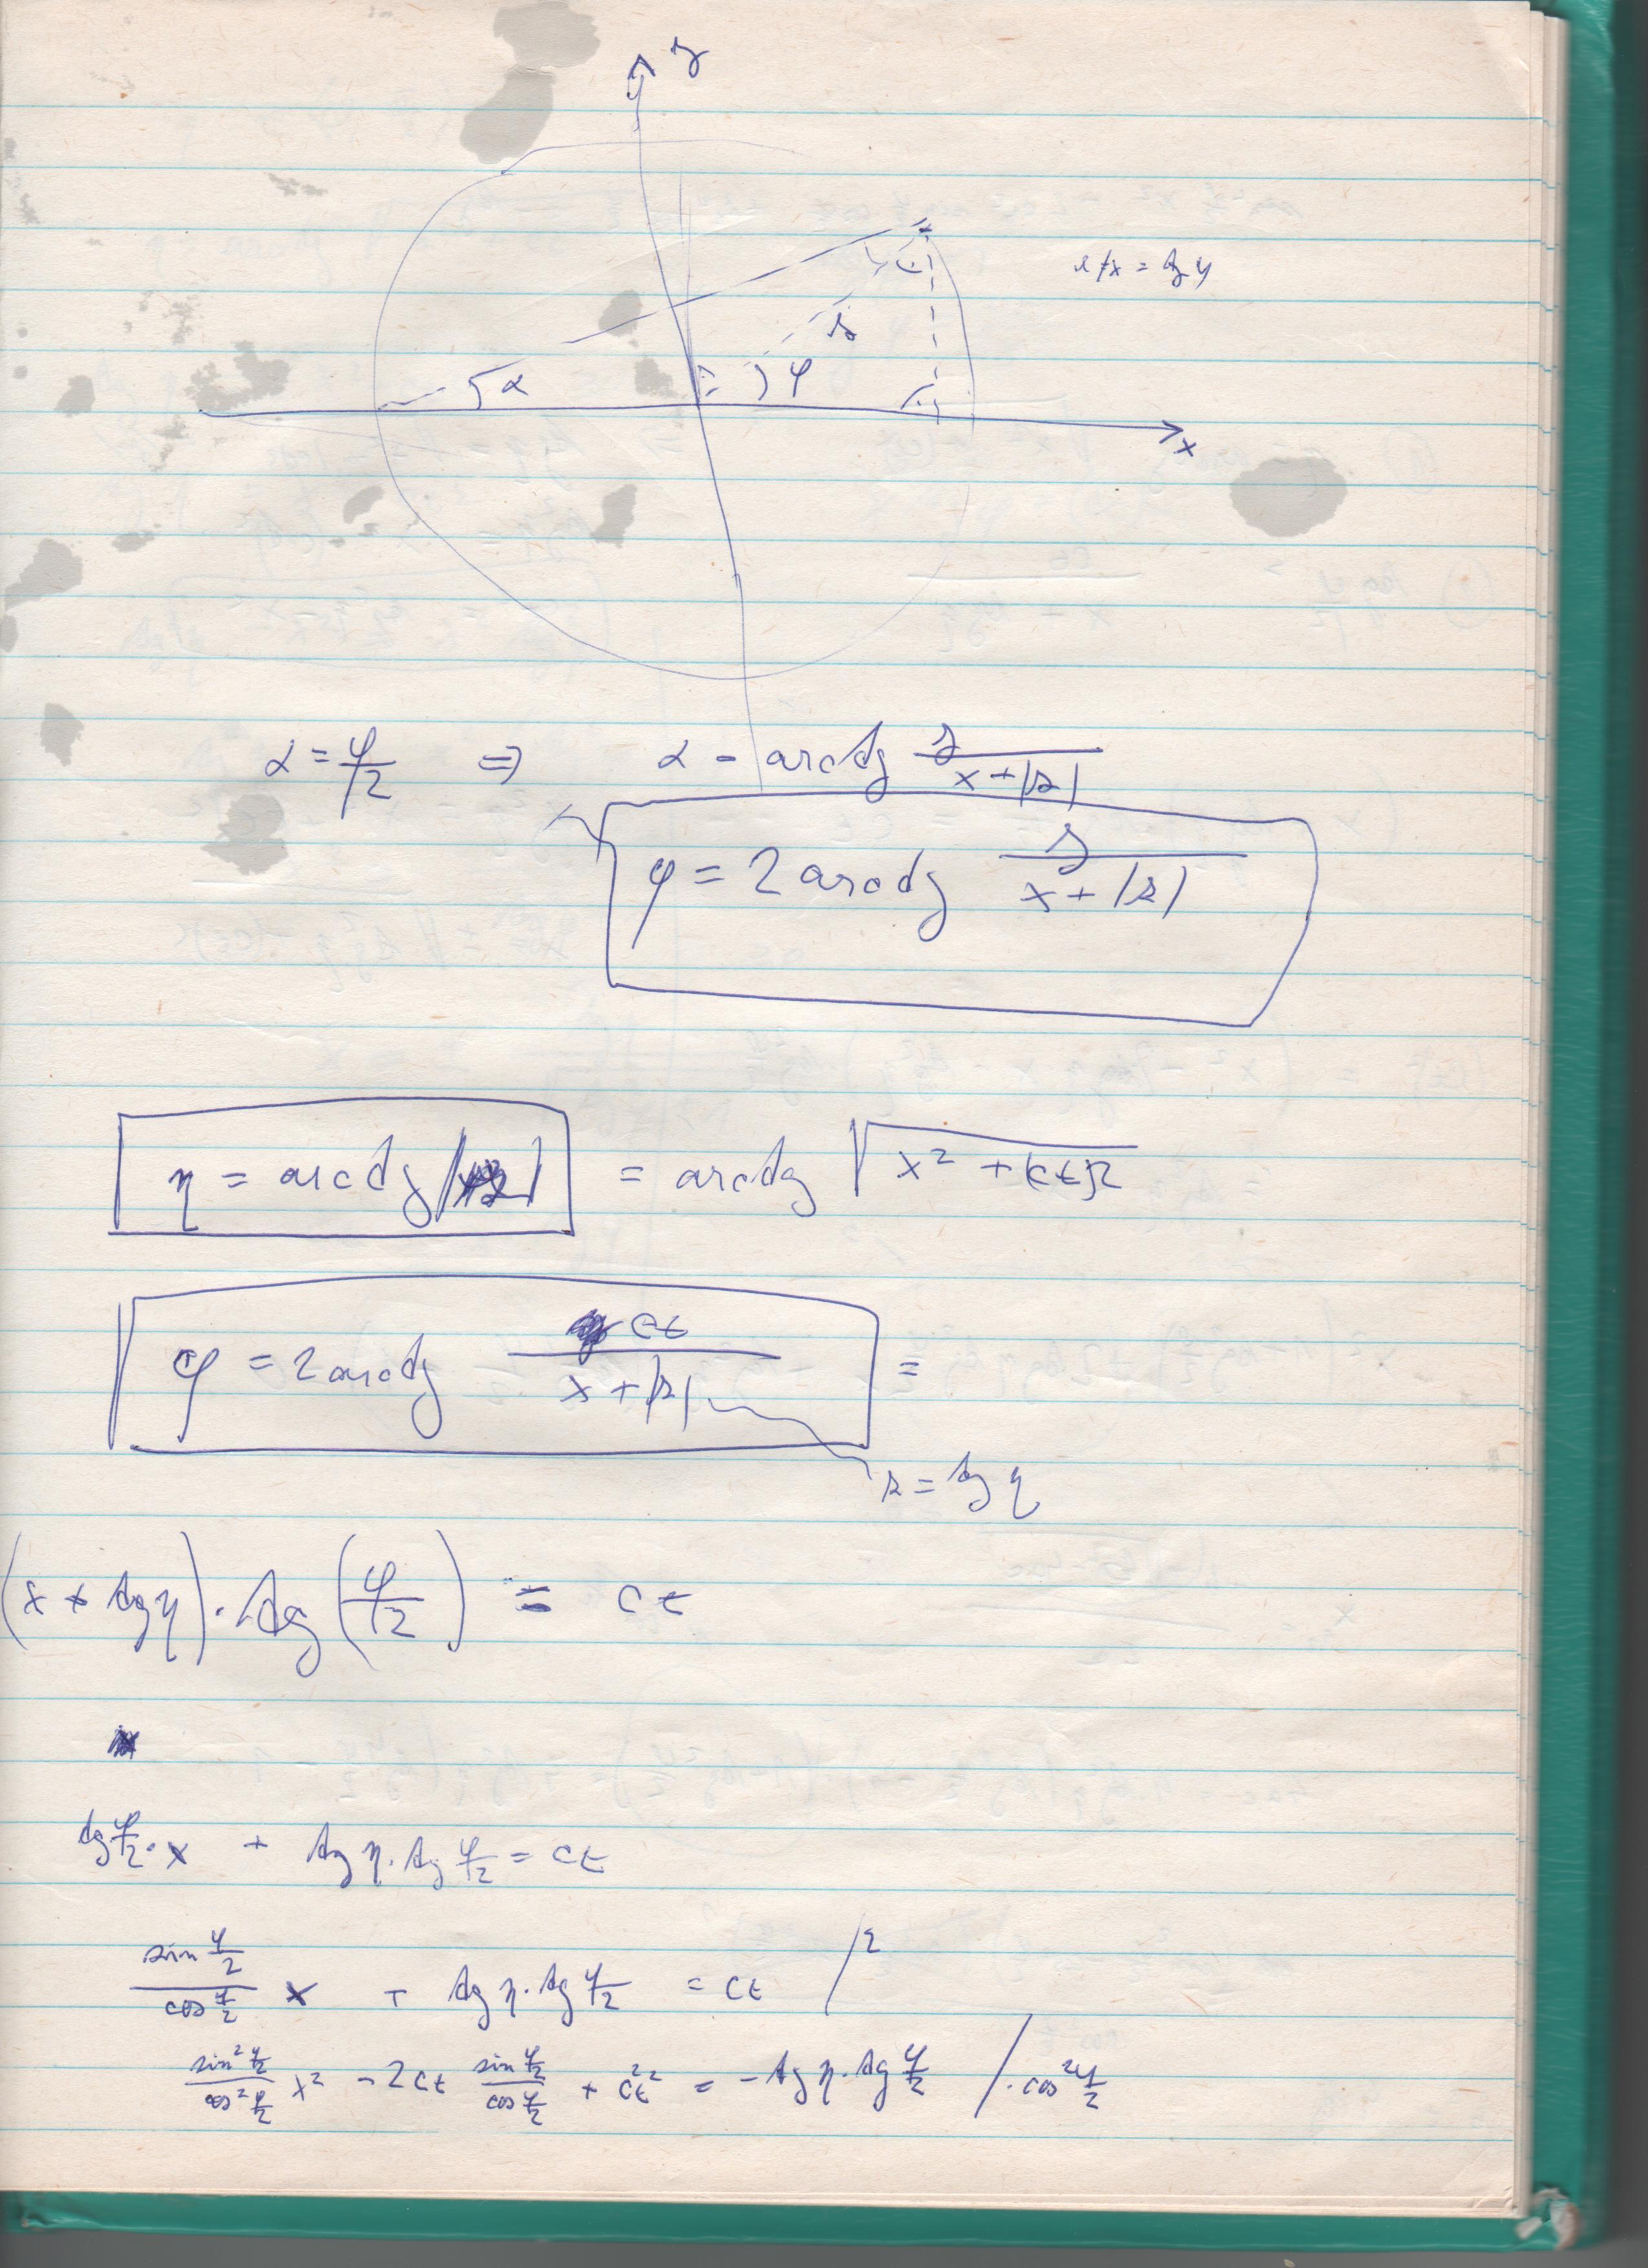 y
x
α
φ
r
y/x = tg φ
α = φ/2 ⇒ α = arctg y/(x+|r|)
φ = 2 arctg y/(x+|r|)
η = arctg |r| = arctg √(x² + (ct)²)
φ = 2 arctg ct/(x+|r|) =
r = tg η
(x + tg η) · tg (φ/2) = ct
tg φ/2 · x + tg η · tg φ/2 = ct
(sin φ/2)/(cos φ/2) x + tg η · tg φ/2 = ct /²
(sin² φ/2)/(cos² φ/2) x² - 2ct (sin φ/2)/(cos φ/2) + c²t² = - tg η · tg φ/2 / · cos² φ/2